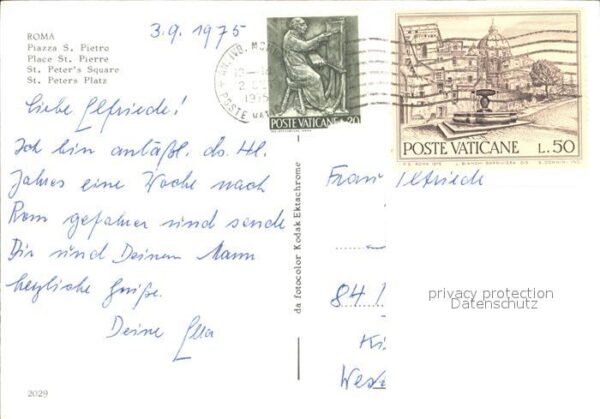 ROMA
Piazza S. Pietro
Place St. Pierre
St. Peter's Square
St. Peters Platz
3.9.1975
Liebe Elfriede!
Ich bin anläßl. ds. Hl.
Jahres eine Woche nach
Rom gefahren und sende
Dir und Deinem Mann
herzliche Grüße.
Deine Ella
2029
da fotocolor Kodak Ektachrome
POSTE VATICANE L.20
POSTE VATICANE L.50
Frau Elfriede
84
privacy protection
Datenschutz